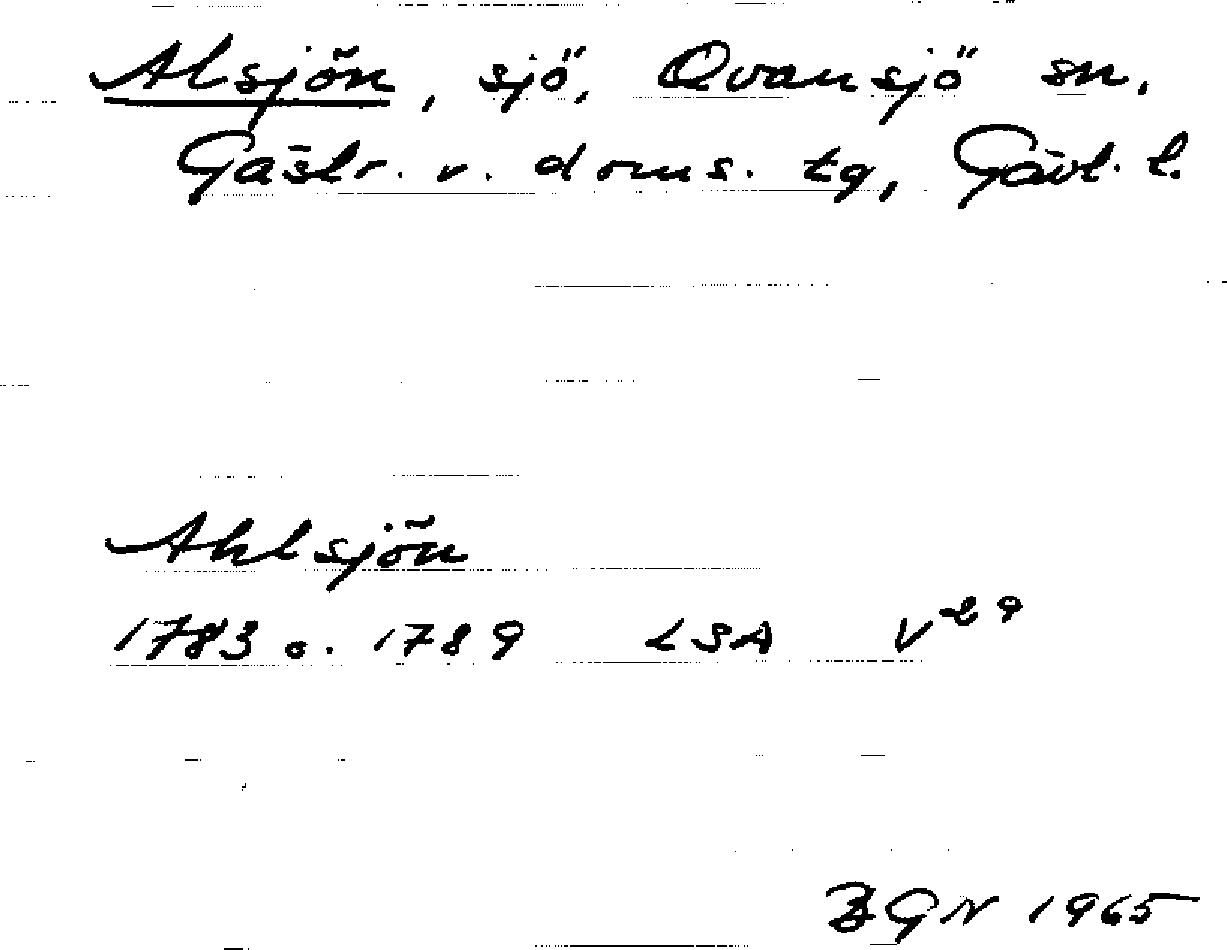 Alsjön, sjö, Ovansjö sn,
Gästr. v. doms. tg, Gävl. l.
Ahlsjön
1783 o. 1789 LSA V29
BGN 1965